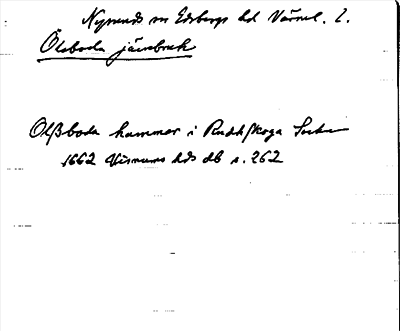 Nysunds sn Edsbergs hd Värml. l.
Ölsboda järnbruk
Olßboda hammar i Rudskoga Sochn
1662 Visnums hds db s. 262